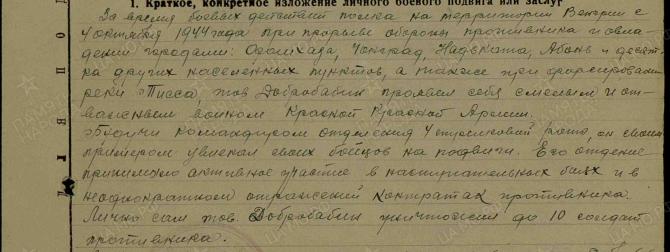 I. Краткое, конкретное изложение личного боевого подвига или заслуг
За время боевых действий полка на территории Венгрии с
4 октября 1944 года при прорыве обороны противника и овла-
дении городами: Чонград, Абонь и десят-
ка других населенных пунктов, а также при форсировании
реки Тисса, тов Добробабин проявил себя смелым и от-
важным воином Красной Армии.
Будучи командиром отделения 4 стрелковой роты, он своим
примером увлекал своих бойцов на подвиги. Его отделение
принимало активное участие в наступательных боях и в
неоднократном отражений контратак противника.
Лично сам тов. Добробабин уничтожил до 10 солдат
противника.